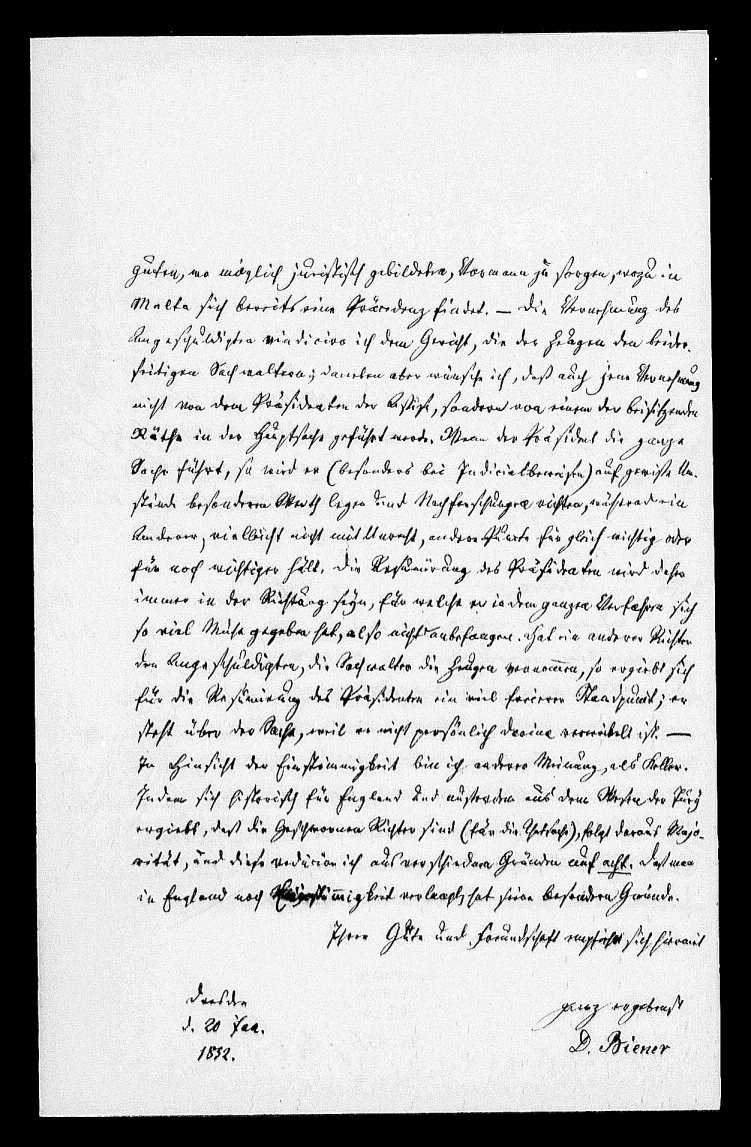 guten, wo möglich juristisch gebildeten, Vormann zu sorgen, wozu in
Malta sich bereits eine Präcedenz findet. — Die Vernehmung des
Angeschuldigten vindicire ich dem Gericht, die der Zeugen den beider-
seitigen Sachwaltern; daneben aber wünsche ich, daß auch jene Vernehmung
nicht von dem Präsidenten der Assise, sondern von einem der beisitzenden
Räthe in der Hauptsache geführt werde. Wenn der Präsident die ganze
Sache führt, so wird er (besonders bei Indicialbeweisen) auf gewisse Um-
stände besonderen Werth legen und Nachforschungen richten, während ein
Anderer, vielleicht nicht mit Unrecht, andere Punkte für gleich wichtig oder
für noch wichtiger hält. Die Resumirung des Präsidenten wird daher
immer in der Richtung seyn, für welche er in dem ganzen Verfahren sich
so viel Mühe gegeben hat, also nicht unbefangen. Hat ein anderer Richter
den Angeschuldigten, die Sachwalter die Zeugen vernommen, so ergiebt sich
für die Resumirung des Präsidenten ein viel freierer Standpunkt; er
steht über der Sache, weil er nicht persönlich darin verwickelt ist. —
In Hinsicht der Einstimmigkeit bin ich anderer Meinung, als Keller.
Indem sich historisch für England und außerdem aus dem Wesen der Jury
ergiebt, daß die Geschwornen Richter sind (für die Thatsache), folgt daraus Majo-
rität, und diese reducire ich aus verschiedenen Gründen auf acht. Daß man
in England noch Einstimmigkeit verlangt, hat seine besondern Gründe.
Ihrer Güte und Freundschaft empfiehlt sich hiermit
ganz ergebenst
D. Biener
Dresden
d. 20 Jan.
1852.